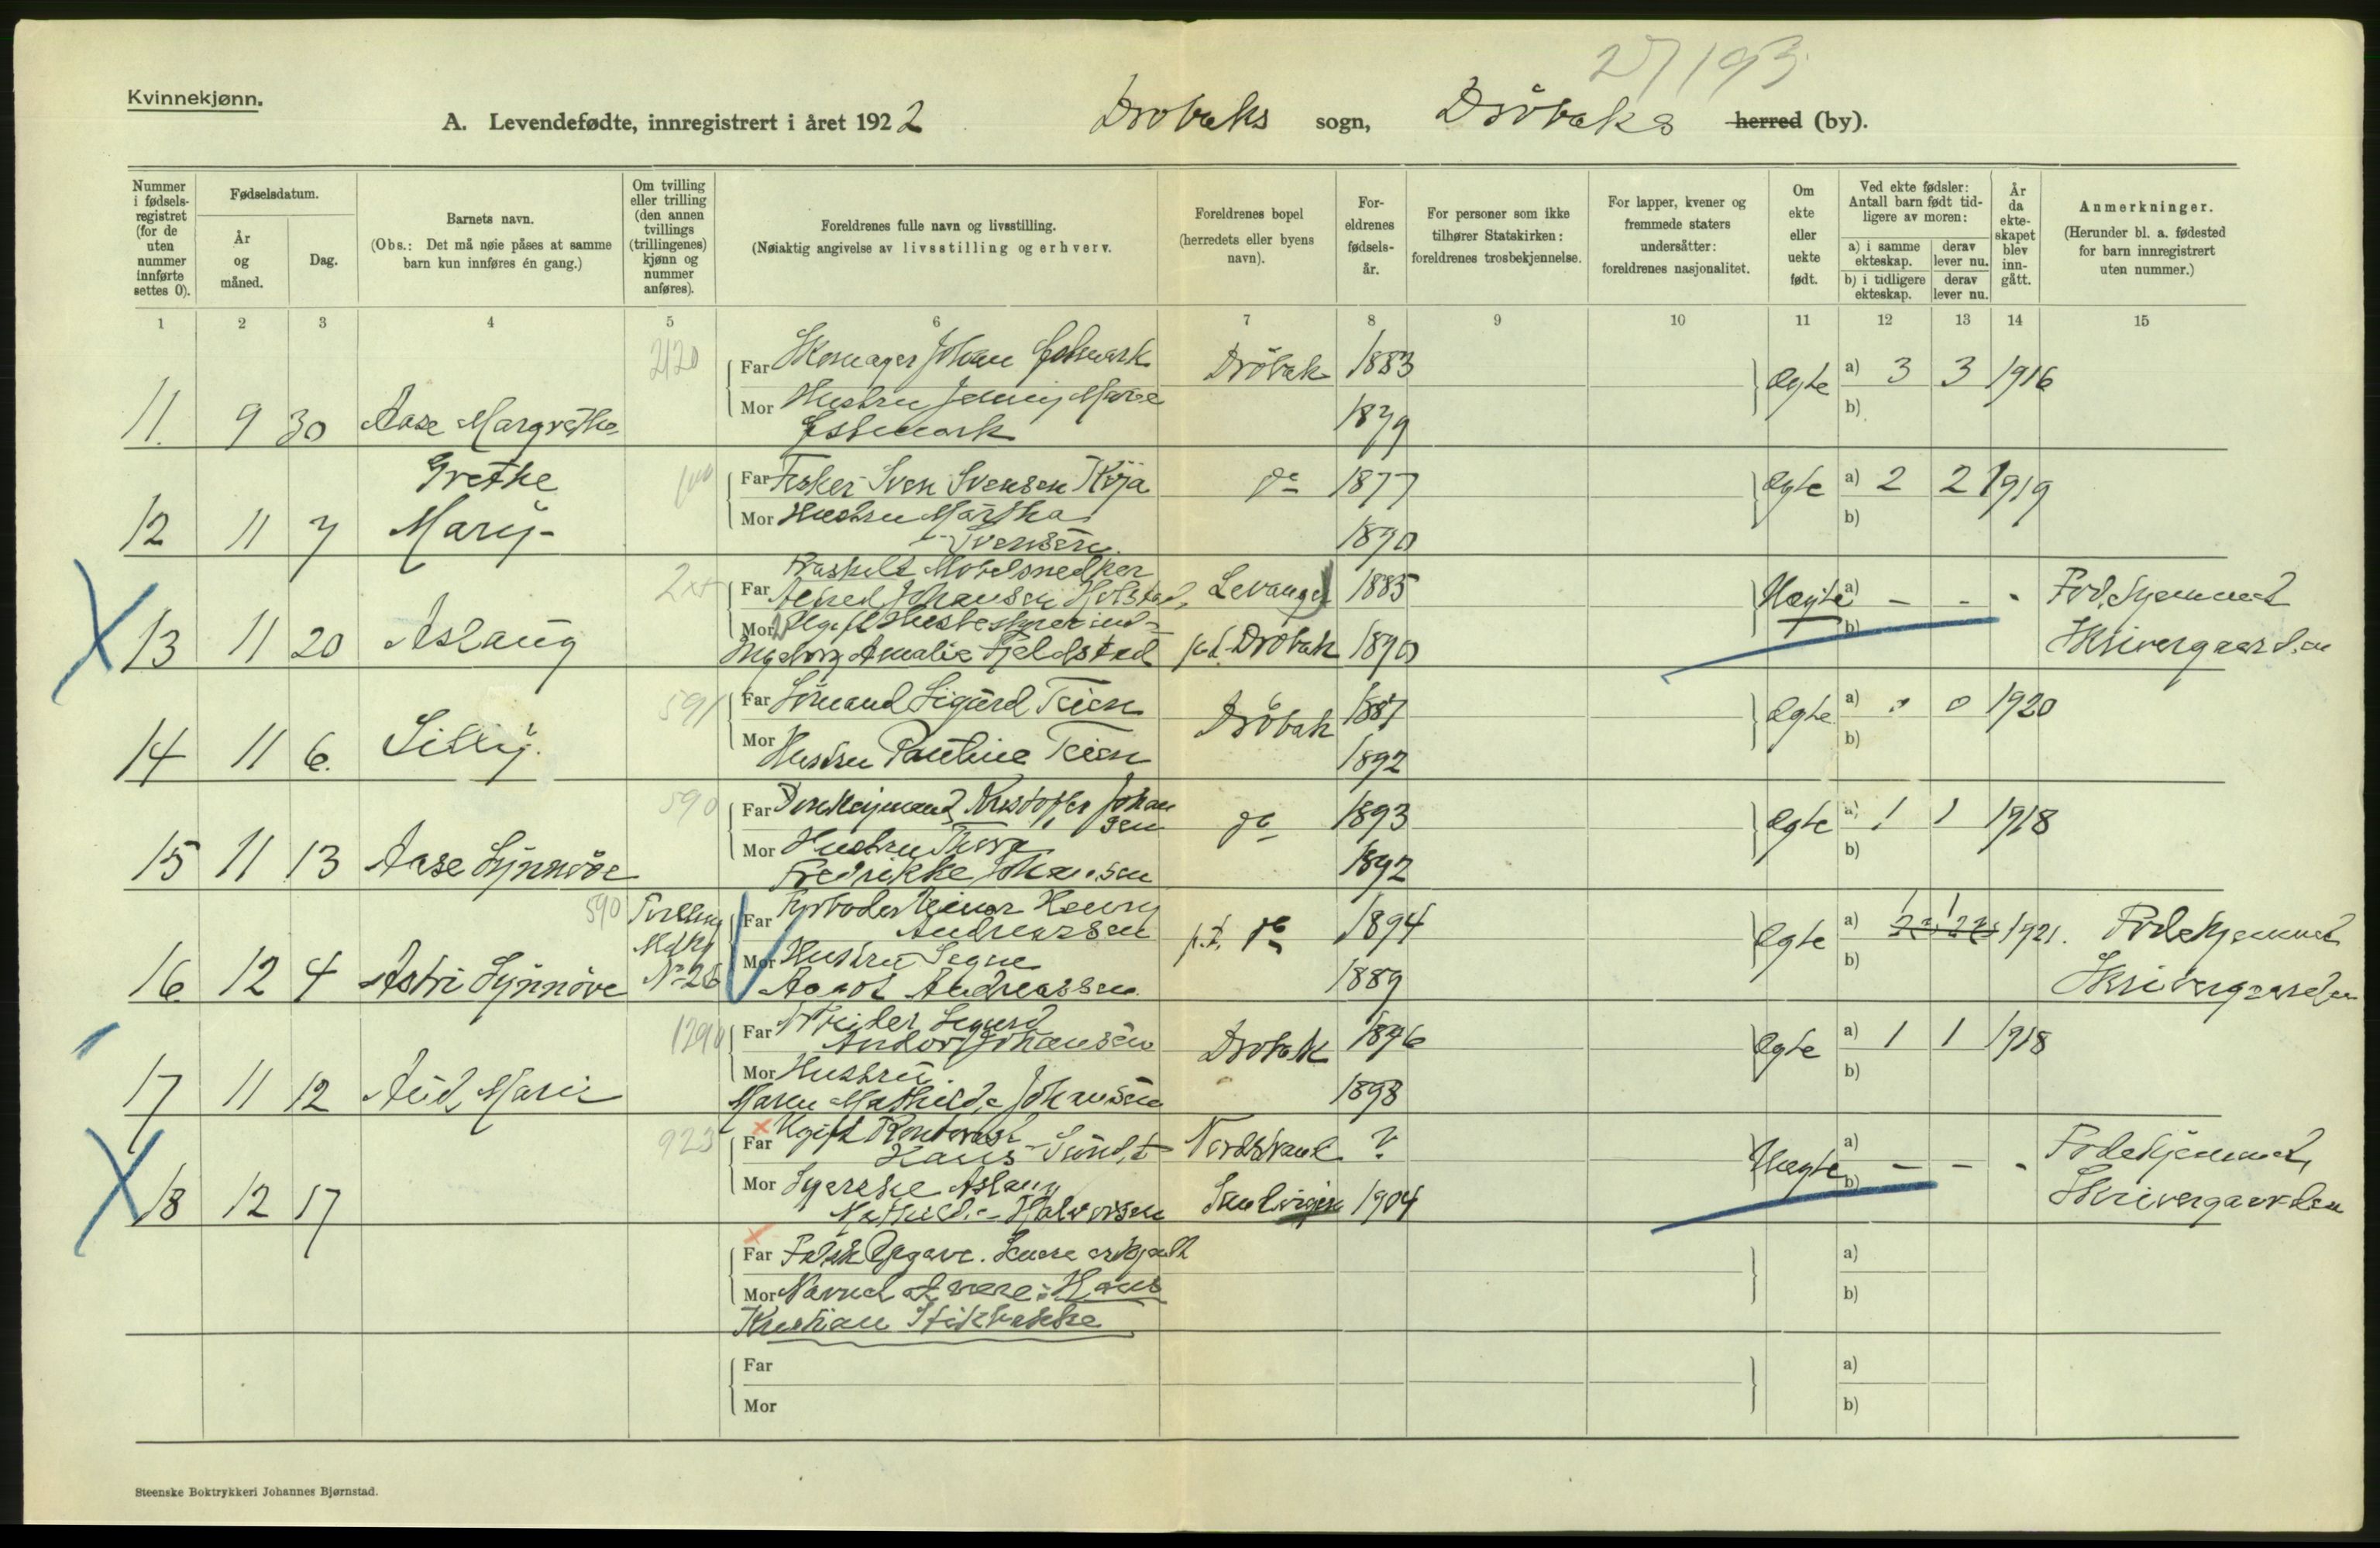 27/193
Kvinnekjønn.
A. Levendefødte, innregistrert i året 1922 Drøbaks sogn, Drøbaks herred (by).
Nummer i fødsels-registret (for de uten nummer innførte settes 0).
Fødselsdatum.
År og måned.
Dag.
Barnets navn.
(Obs.: Det må nøie påses at samme barn kun innføres én gang.)
Om tvilling eller trilling (den annen tvillings (trillingenes) kjønn og nummer anføres).
Foreldrenes fulle navn og livsstilling.
(Nøiaktig angivelse av livsstilling og erhverv.
Foreldrenes bopel (herredets eller byens navn).
For-eldrenes fødsels-år.
For personer som ikke tilhører Statskirken: foreldrenes trosbekjennelse.
For lapper, kvener og fremmede staters undersåtter: foreldrenes nasjonalitet.
Om ekte eller uekte født.
Ved ekte fødsler: Antall barn født tid-ligere av moren:
a) i samme ekteskap.
derav lever nu.
b) i tidligere ekteskap.
derav lever nu.
År da ekte-skapet blev inn-gått.
Anmerkninger.
(Herunder bl. a. fødested for barn innregistrert uten nummer.)
1 2 3 4 5 6 7 8 9 10 11 12 13 14 15
2120 Far Skomager Johan Drøbak 1883 Ægte a) 3 3 1916
Mor Hustru Jenny Marie b)
11. 9 30 Aase Margrethe 1879
Grethe Far Fisker Sven Svensen Kója do 1877 Ægte a) 2 2 1919
12 11 7 Mary- Mor Hustru Martha b)
Svensen 1890
Fraskilt Møbelsnedker
Far Alfred Johansen Levanger 1885 Uægte a) - - - Fødehjemmet
Mor Ug. Husbestyrerinde b)
13 11 20 Aslaug Ingeborg Amalie Fjeldstad p.t. Drøbak 1890 Skrivergaarden
591 Far Sømand Sigurd Teien Drøbak 1887 Ægte a) 0 0 1920
14 11 6. Lilly. Mor Hustru Pauline Teien 1892 b)
590 Far Kristoffer Johan sen do 1893 Ægte a) 1 1 1918
Mor Hustru Thora b)
15 11 13 Aase Synnøve Fredrikke Johansen 1892
590 Tvilling Far Fyrbøder Einar Henry Andreassen p.t. do 1894 Ægte a) 1 1 1921. Fødehjemmet
Mor Hustru Signe b)
16 12 4 Astri Synnøve No 26 Aagot Andreassen 1889 Skrivergaarden
1290 Far Sigurd Andor Johansen Drøbak 1896 Ægte a) 1 1 1918
Mor Hustru b)
17 11 12 Aud, Marie Maren Mathilde Johansen 1898
923 Far Ugift Kontorist Hans Sund,t Nordstrand ? Uægte a) - - - Fødehjemmet,
Mor Syerske Aslaug b)
18 12 17 Mathilde Halvorsen Sandvigen 1904 Skrivergaarden
Far Falsk Opgave. Senere a)
Mor Navnet at være: Hans b)
Kristian Stikbakke
Far a)
Mor b)
Steenske Boktrykkeri Johannes Bjørnstad.